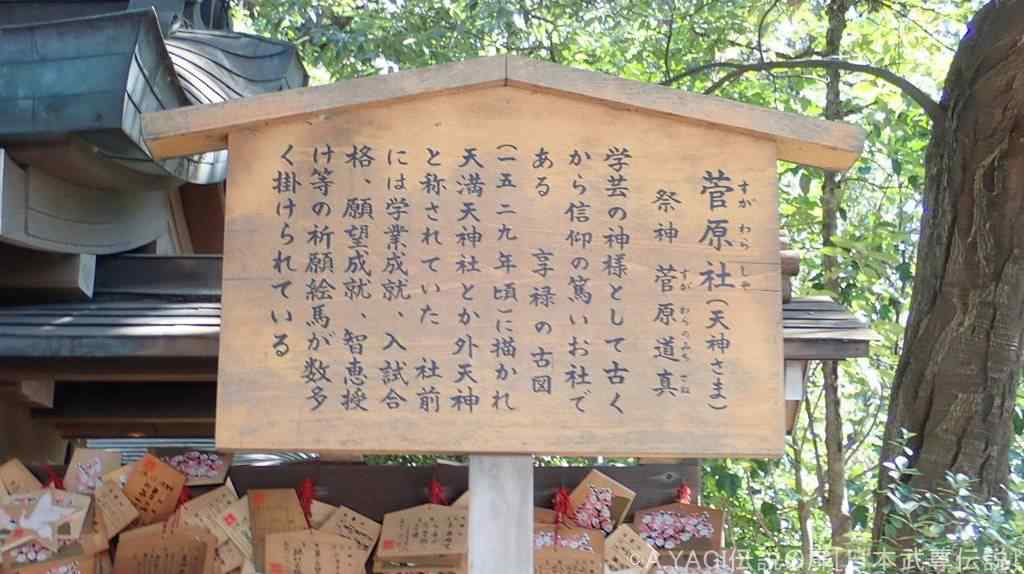 菅原社(天神さま)
すが わら しや
祭神 菅原道真
すが わらのみち ざね
学芸の神様として古く
から信仰の篤いお社で
ある 享禄の古図
(一五二九年頃)に描かれ
天満天神社とか外天神
と称されていた 社前
には学業成就、入試合
格、願望成就、智恵授
け等の祈願絵馬が数多
く掛けられている
©A.YAGI伝説の扉[日本武尊伝説]